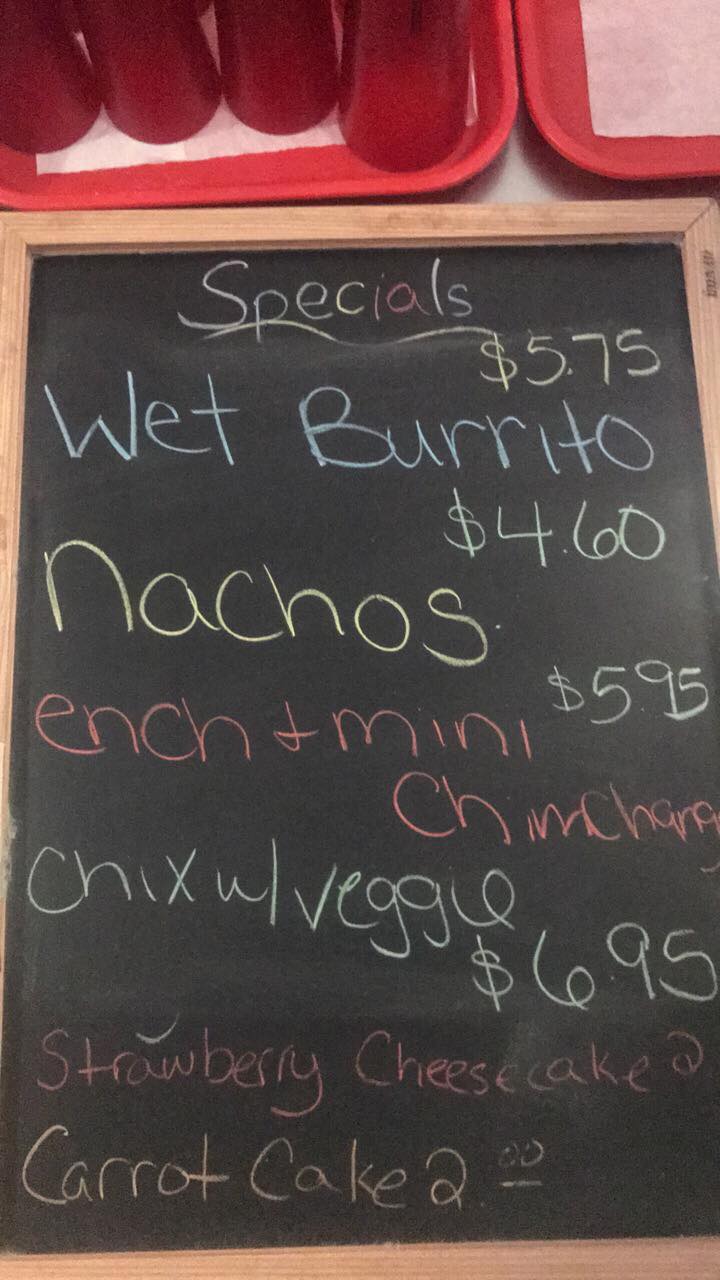 Specials
$5.75
Wet Burrito
$4.60
nachos
$5.95
ench + mini
Chimchang
chix w/ veggie
$6.95
Strawberry Cheesecake 2
Carrot Cake 2.00